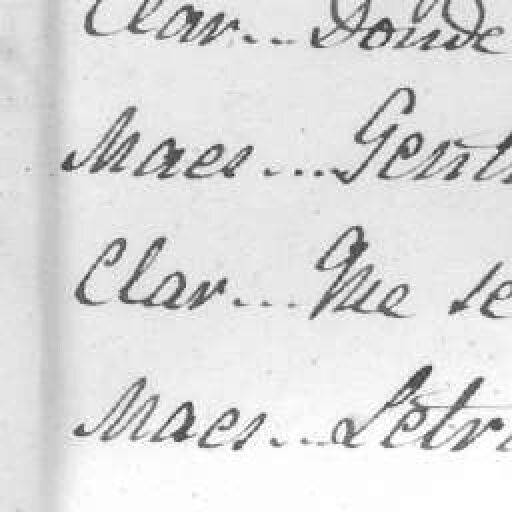 Clar... Donde
Maes.... Gent
Clar... Que se
Maes... Letr